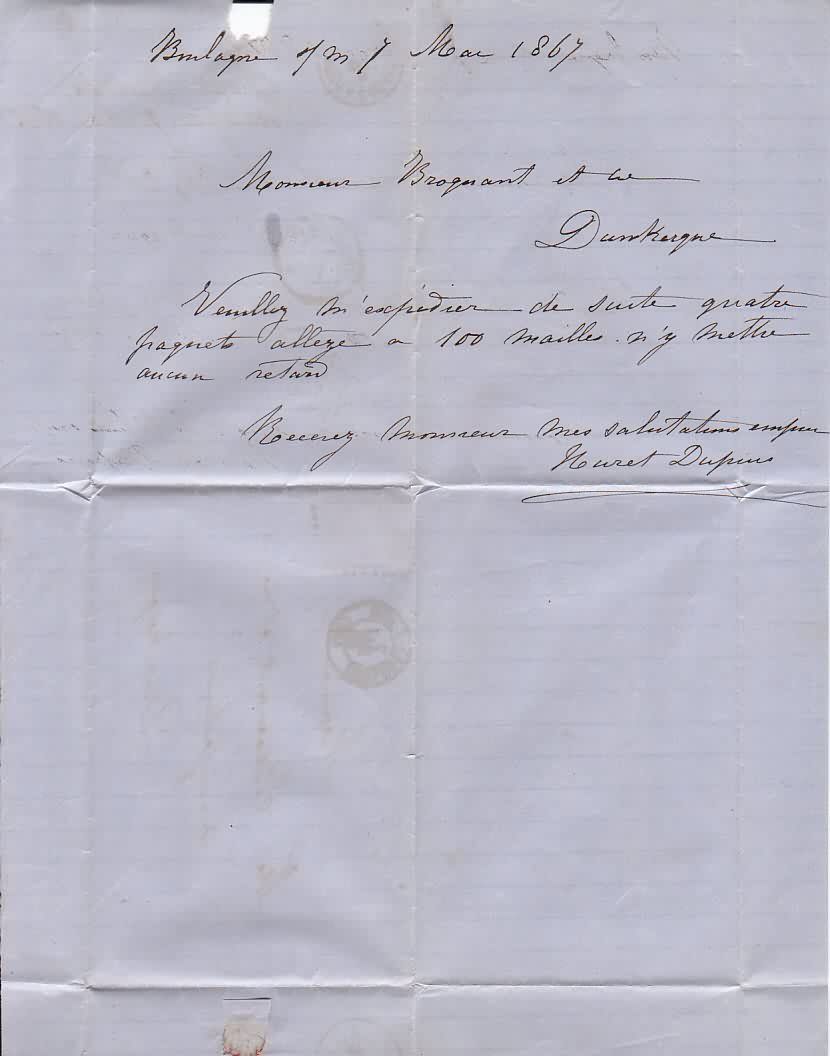 Boulogne s/m 7 Mai 1867
Monsieur Broquant et Cie
Dunkerque
Veuillez m'expédier de suite quatre
paquets alleze a 100 mailles. n'y mettre
aucun retard
Recevez monsieur mes salutations
Huret Dupuis